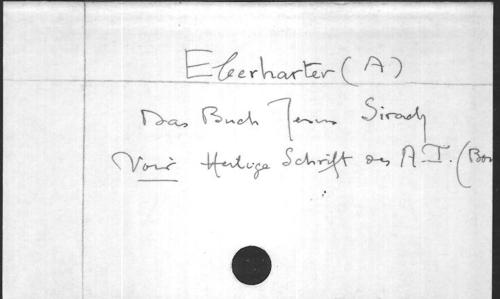 Eberharter (A)
Das Buch Jesus Sirach
Voir Heilige Schrift des A.T. (Bon